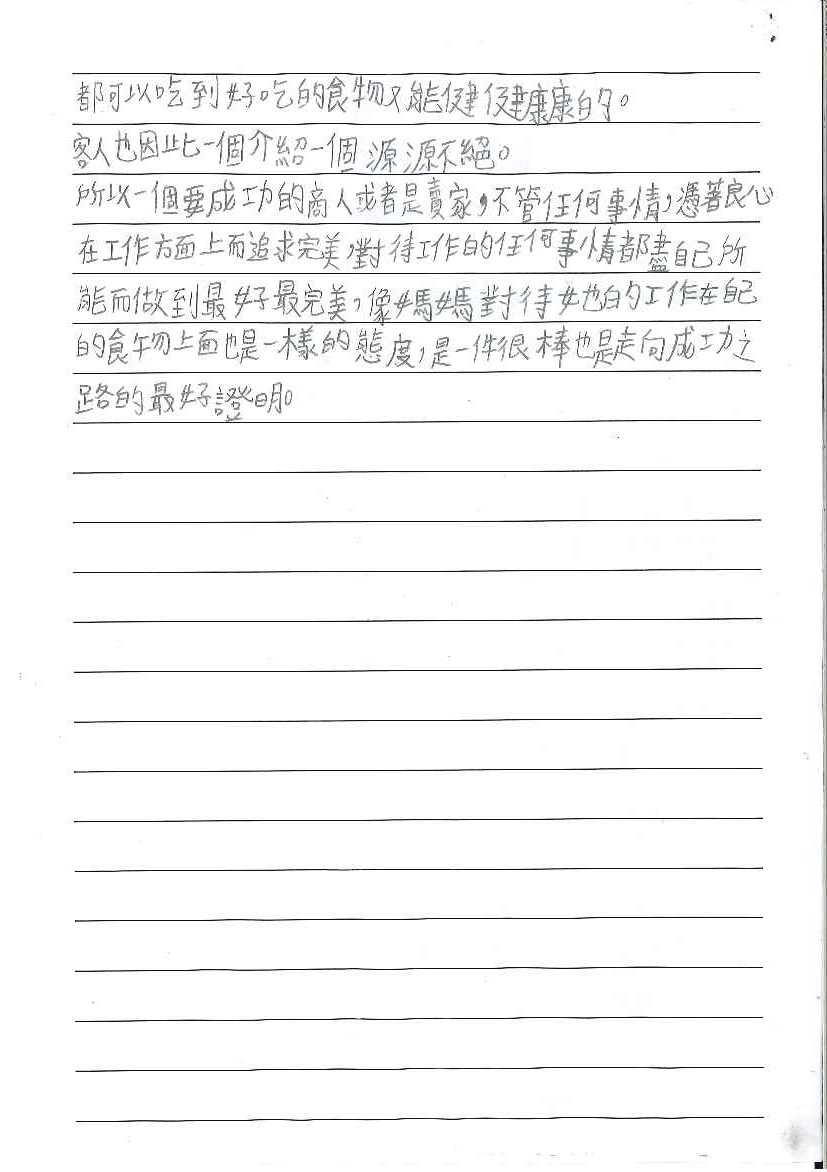 都可以吃到好吃的食物又能健健康康的。
客人也因此一個介紹一個源源不絕。
所以一個要成功的商人或者是賣家，不管任何事情，憑著良心
在工作方面上而追求完美，對待工作的任何事情都盡自己所
能而做到最好最完美，像媽媽對待她的工作在自己
的食物上面也是一樣的態度，是一件很棒也是走向成功之
路的最好證明。